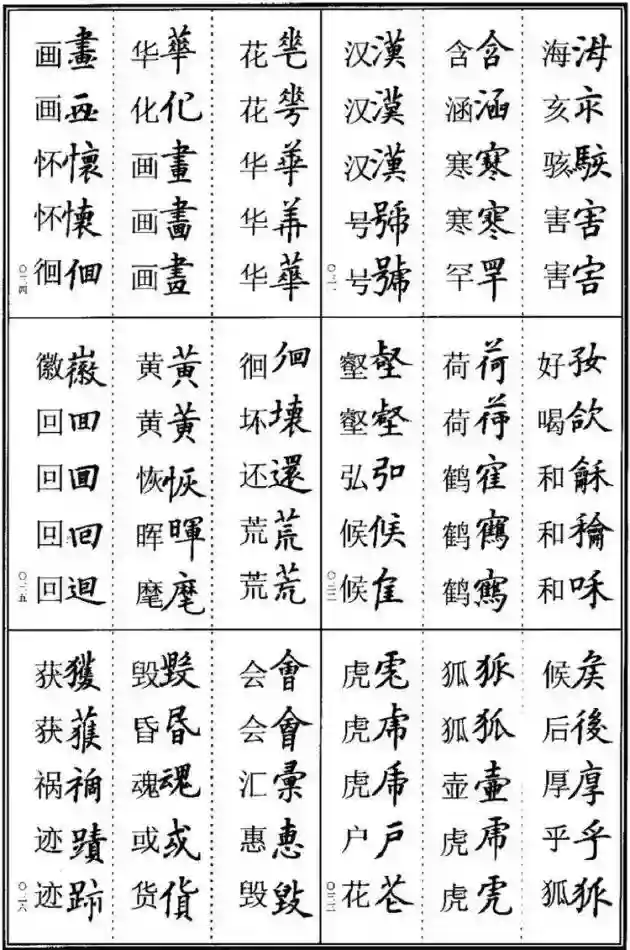 海海亥亥骇駭害害害害
含含涵涵寒寒寒寒罕罕
汉漢汉漢汉漢号號号號
〇二一
好好喝欱和龢和和咊
荷荷荷荷鹤寉鹤鶴鹤鶴
壑壑壑壑弘弘候候候隹
〇二二
候矦后後厚厚乎乎狐狐
狐狐狐狐壶壷虎虎虎虎
虎虎虎虎虎虎户戶花花
〇二三
花花花华華华华華
华華化化画畫画畫画畫
画畫画画怀懷怀懐徊徊
〇二四
徊徊坏壞还還荒荒荒荒
黄黃黄黃恢恢晖暉麾麾
徽徽回回回囬回回回迴
〇二五
会會会會汇彙惠惠毁毀
毁毀昏昬魂魂或或货貨
获獲获獲祸禍迹蹟迹跡
〇二六